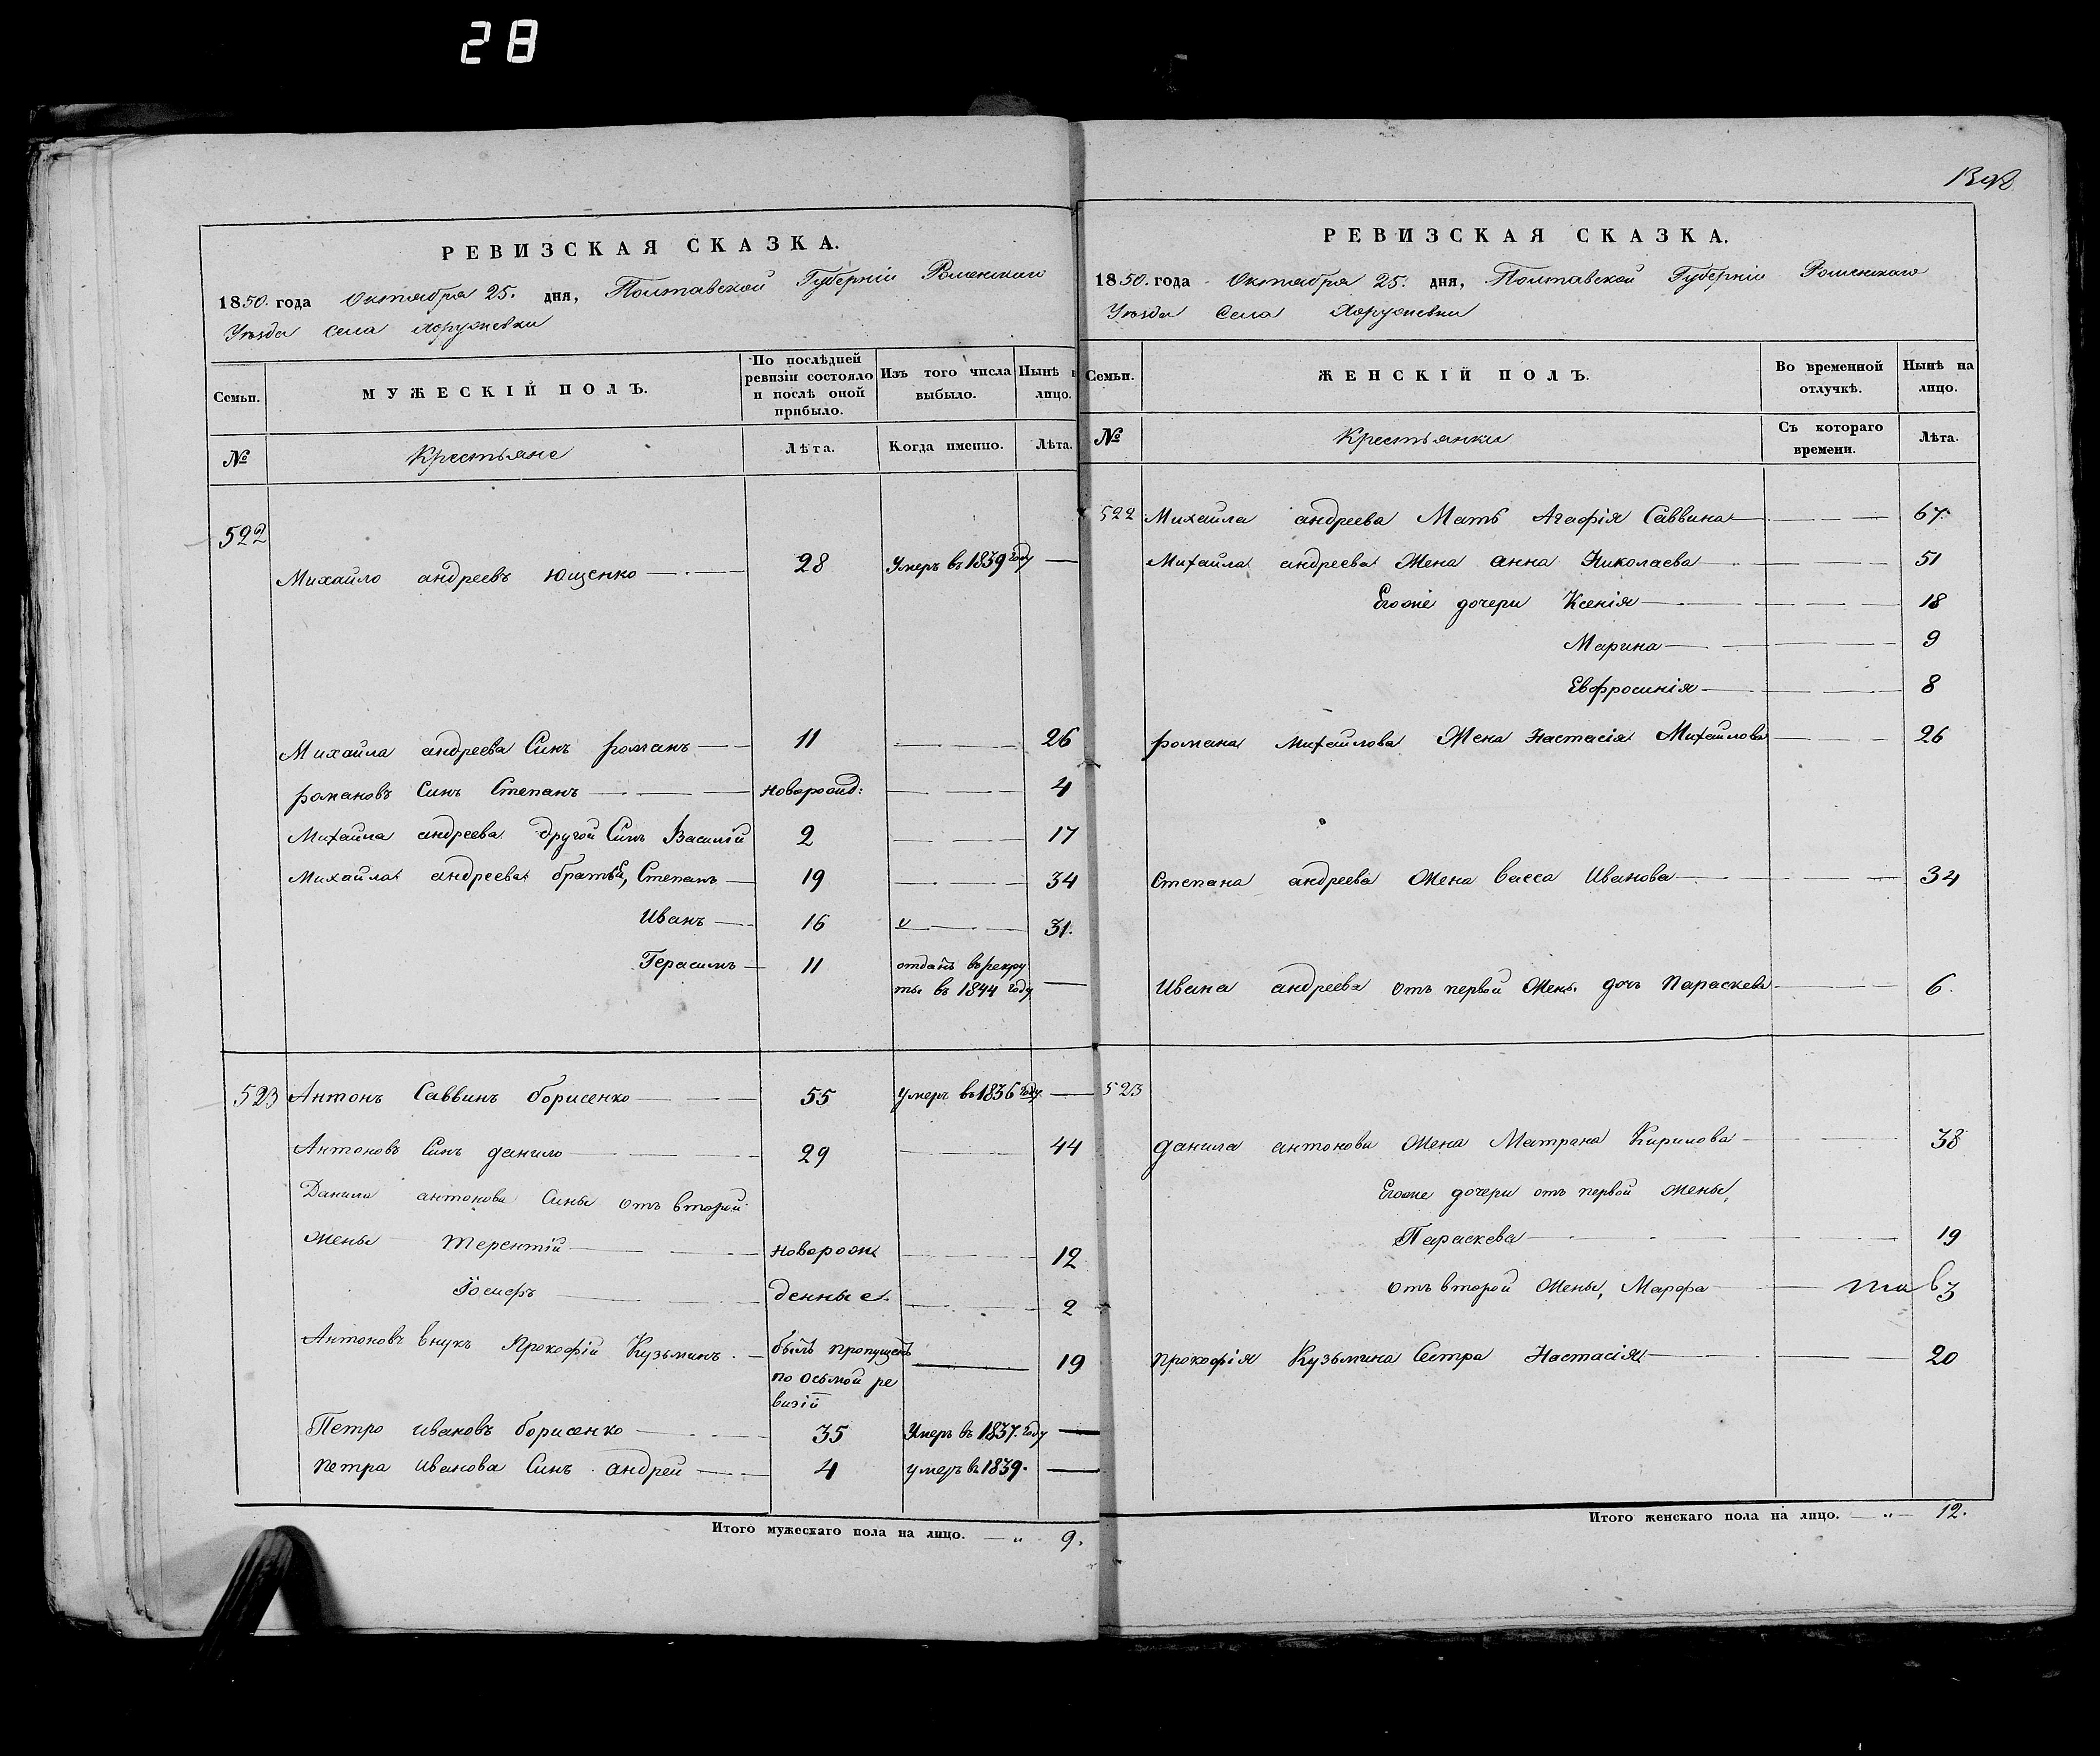 28
РЕВИЗСКАЯ СКАЗКА.
1850. года Октября 25. дня, Полтавской Губернiи Роменскаго
Уѣзда Села Хоружевки
Семьи.
МУЖЕСКIЙ ПОЛЪ.
По послѣдней ревизiи состояло и послѣ оной прибыло.
Изъ того числа выбыло.
Нынѣ н лицо.
№
Крестьяне
Лѣта.
Когда именно.
Лѣта.
522
Михайло андреевъ Ющенко 28 Умеръ въ 1839 году
Михайла андреева Синъ романъ 11 26
романовъ Синъ Степанъ новорожд: 4
Михайла андреева другой Синъ Василiй 2 17
Михайла андреева братья, Степанъ 19 34
Иванъ 16 31.
Герасимъ 11 отданъ въ рекру
ты въ 1844 году
523 Антонъ Саввинъ борисенко 55 Умеръ въ 1836 году.
Антоновъ Синъ данило 29 44
Данила антонова Сины отъ второй
жены Терентiй новорож 12
Iосифъ денные. 2
Антоновъ внукъ Прокофiй Кузьминъ. былъ пропущенъ 19
по осьмой ре
визiй
Петро ивановъ борисенко 35 Умеръ въ 1837. году
Петра Иванова Синъ андрей 4 умеръ въ 1839.
Итого мужескаго пола на лицо. 9.
РЕВИЗСКАЯ СКАЗКА.
1850. года Октября 25. дня, Полтавской Губернiи Роменскаго
Уѣзда Села Хоружевки
Семьи.
ЖЕНСКIЙ ПОЛЪ.
Во временной отлучкѣ.
Нынѣ на лицо.
№
Крестьянки
Съ котораго времени.
Лѣта.
522 Михайла андреева Мать Агафiя Саввина 67.
Михайла андреева Жена анна Николаева 51
Егоже дочери Ксенiя 18
Марина 9
Евфросинiя 8
романа Михайлова Жена Настасiя Михайлова 26
Степана андреева Жена васса Иванова 34
Ивана андреева отъ первой Жены дочь Параскева 6.
523
данила антонова Жена Матрона Кирилова 38
Егоже дочери отъ первой жены,
Параскева 19
отъ второй Жены, Марфа
Прокофiя Кузьмина Сестра Настасiя 20
Итого женскаго пола на лицо. 12.